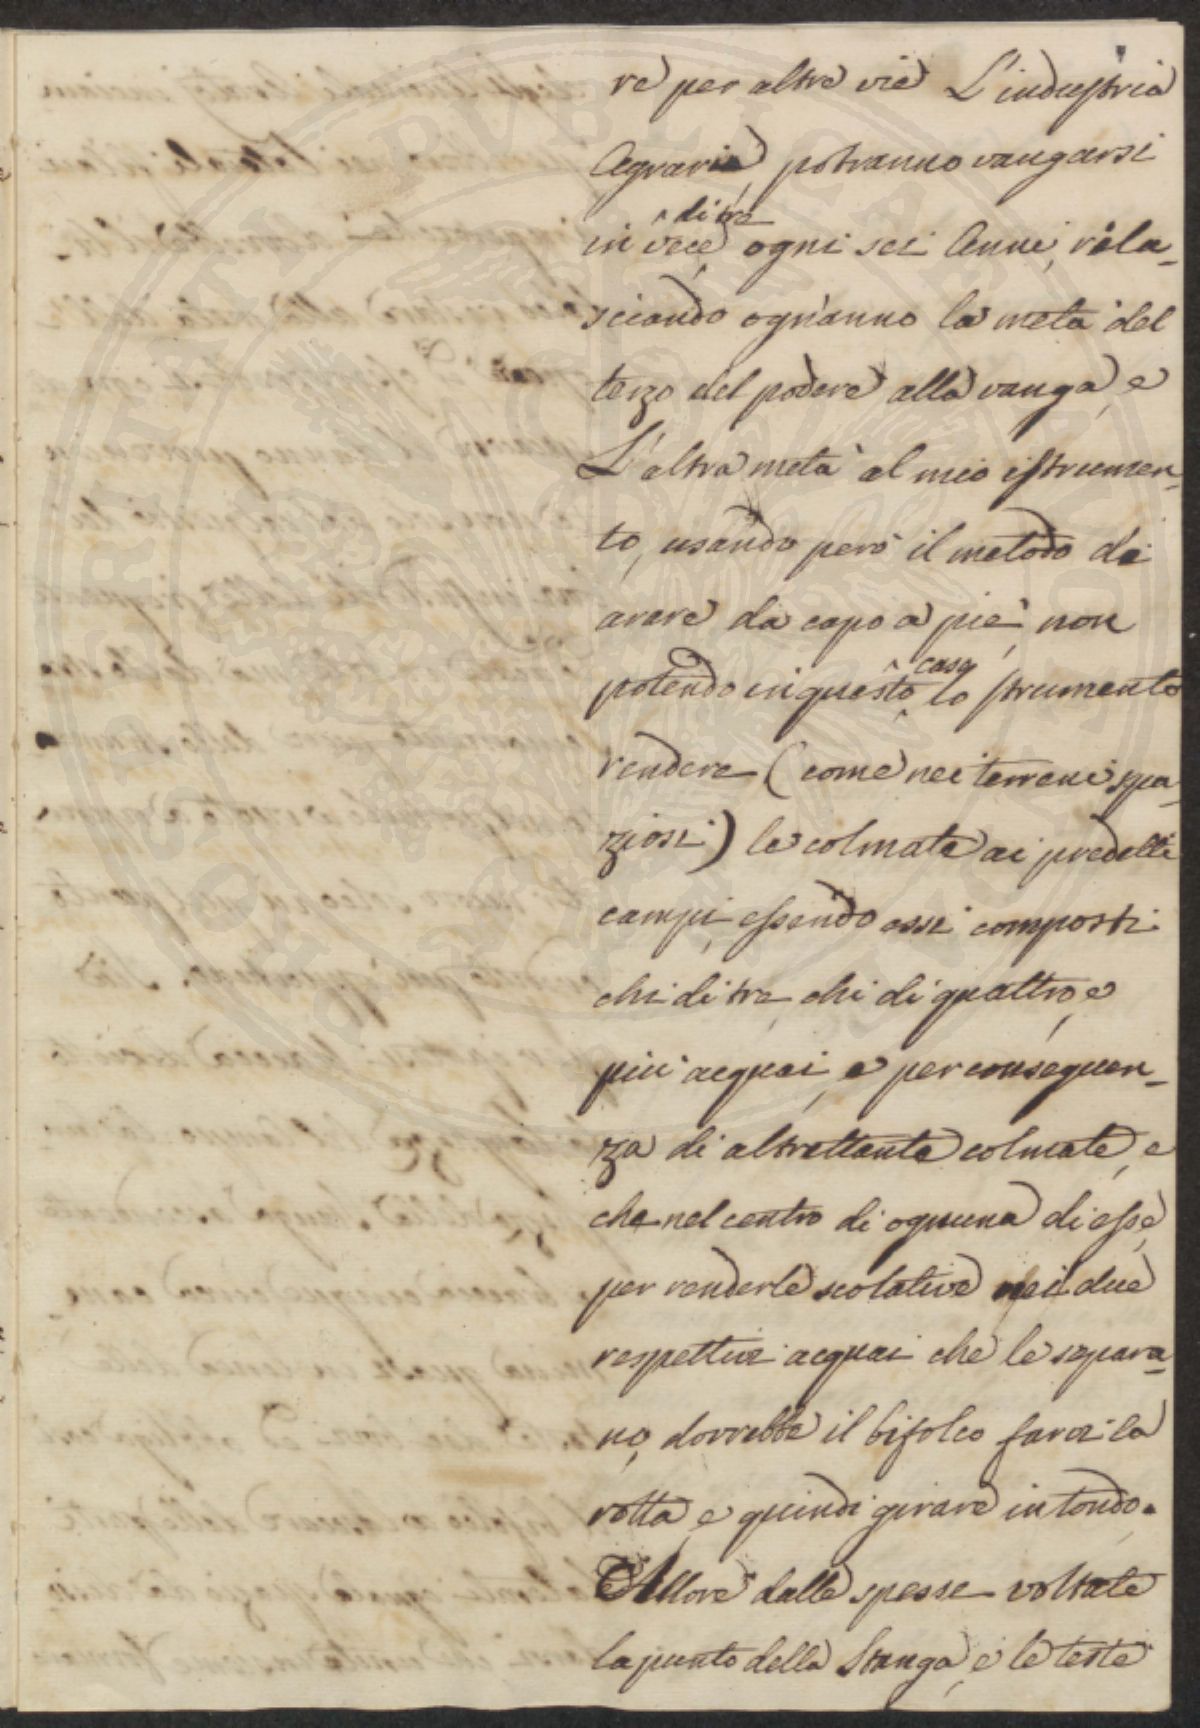 re per altre vie L'industria
Agraria, potranno vangarsi
in vece di tre ogni sei Anni, rila-
sciando ogn'anno la metà del
terzo del podere alla vanga, e
L'altra metà al mio istrumen-
to, usando però il metodo di
arare da capo a piè, non
potendo in questo caso, lo strumento
rendere (come nei terreni spa-
ziosi) le colmate ai predetti
campi, essendo essi composti
chi di tre, chi di quattro, e
più acquai, e per conseguen-
za di altrettante colmate, e
che nel centro di ognuna di esse,
per renderle scolative nei due
respettivi acquai che le separa-
no, dovrebbe il bifolco farci la
rotta, e quindi girare in tondo.
Allora dalle spesse voltate
la punta della Stanga, e le teste